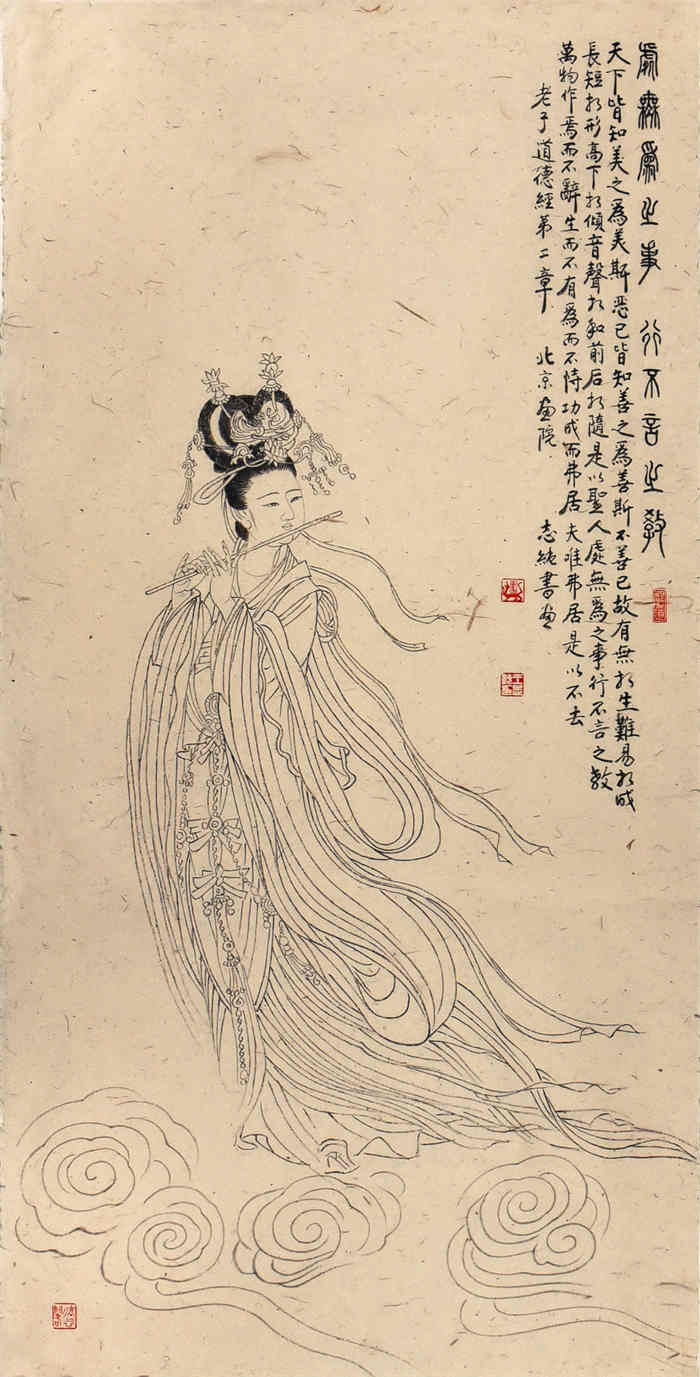 處無爲之事 行不言之教
天下皆知美之爲美斯恶已皆知善之爲善斯不善已故有無相生難易相成
長短相形高下相傾音聲相和前后相隨是以聖人處無爲之事行不言之教
萬物作焉而不辭生而不有爲而不恃功成而弗居夫唯弗居是以不去
老子道德經第二章 北京画院 志純書画